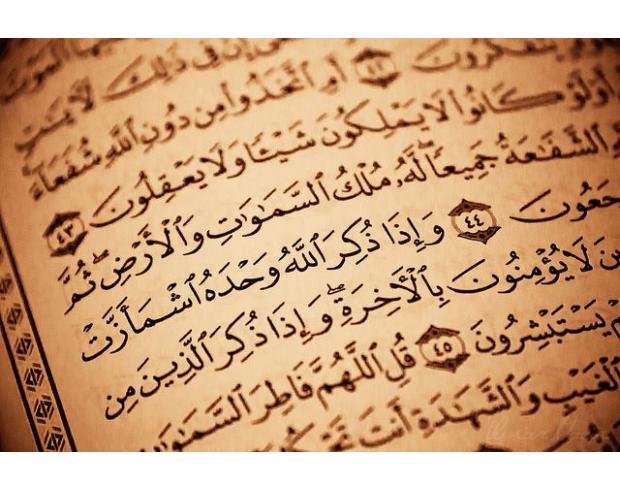 إِنَّ فِى ذَٰلِكَ لَـَٔايَٰتٍ
يَتَفَكَّرُونَ ٤٢ أَمِ ٱتَّخَذُوا۟ مِن دُونِ ٱللَّهِ شُفَعَآءَ
أَوَلَوْ كَانُوا۟ لَا يَمْلِكُونَ شَيْـًٔا وَلَا يَعْقِلُونَ ٤٣
ٱلشَّفَٰعَةُ جَمِيعًا ۖ لَّهُۥ مُلْكُ ٱلسَّمَٰوَٰتِ وَٱلْأَرْضِ ۖ ثُمَّ
جَعُونَ ٤٤ وَإِذَا ذُكِرَ ٱللَّهُ وَحْدَهُ ٱشْمَأَزَّتْ
ينَ لَا يُؤْمِنُونَ بِٱلْأَخِرَةِ ۖ وَإِذَا ذُكِرَ ٱلَّذِينَ مِن
مْ يَسْتَبْشِرُونَ ٤٥ قُلِ ٱللَّهُمَّ فَاطِرَ ٱلسَّمَٰوَٰتِ
ٱلْغَيْبِ وَٱلشَّهَٰدَةِ أَنتَ تَحْكُمُ